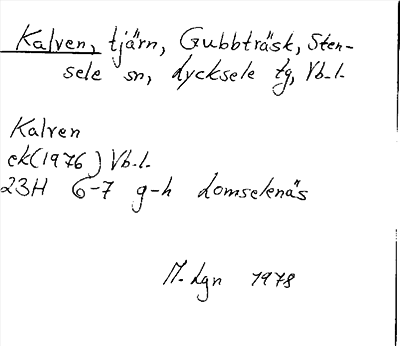 Kalven, tjärn, Gubbträsk, Sten-
sele sn, Lycksele tg, Vb.l.
Kalven
ek(1976) Vb.l.
23H 6-7 g-h Lomselenäs
M. Lgn 1978